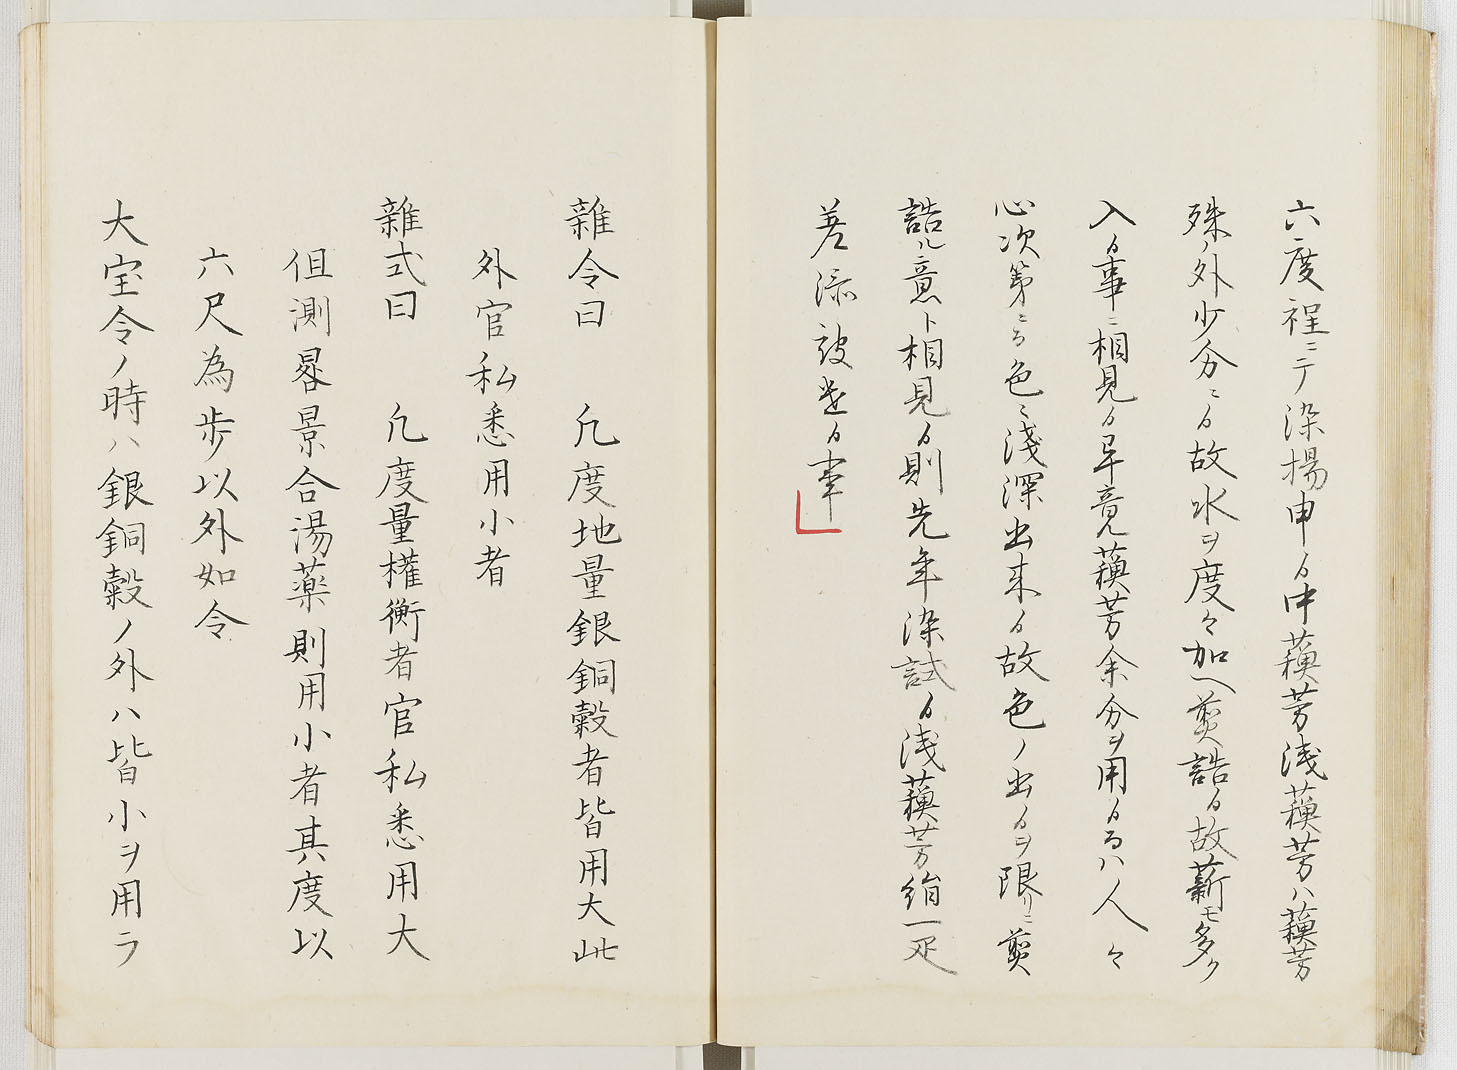 六度程ニテ染揚申候中蘓芳浅蘓芳ハ蘓芳
殊ノ外少分ニ候故水ヲ度々加へ煎詰候故薪モ多ク
入候事ニ相見候畢竟蘓芳余分ヲ用候ハ人々
心次第ニ而色ニ淺深出来候故色ノ出候ヲ限リニ煎
詰ル意ト相見候則先年染試候浅蘓芳絹一疋
差添被遣候事
雜令曰　凡度地量銀銅穀者皆用大此
外官私悉用小者
雜式曰　凡度量権衡者官私悉用大
但測晷景合湯藥則用小者其度以
六尺為歩以外如令
大宝令ノ時ハ銀銅穀ノ外ハ皆小ヲ用ラ